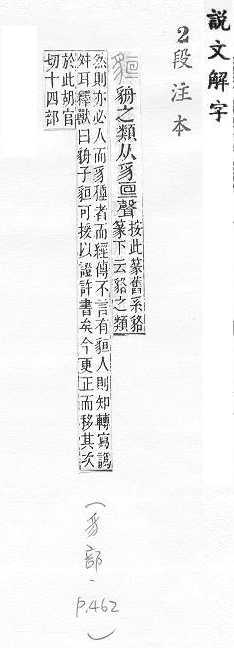 說文解字
2段注本
貆 貈之類从豸亘聲
按此篆舊系貉
篆下云貉之類
然則亦必人而豸穜者而經傳不言有貆人則知轉寫譌
舛耳釋獸曰貈子貆可援以證許書矣今更正而移其次
於此胡官
切十四部
(豸部、P.462)